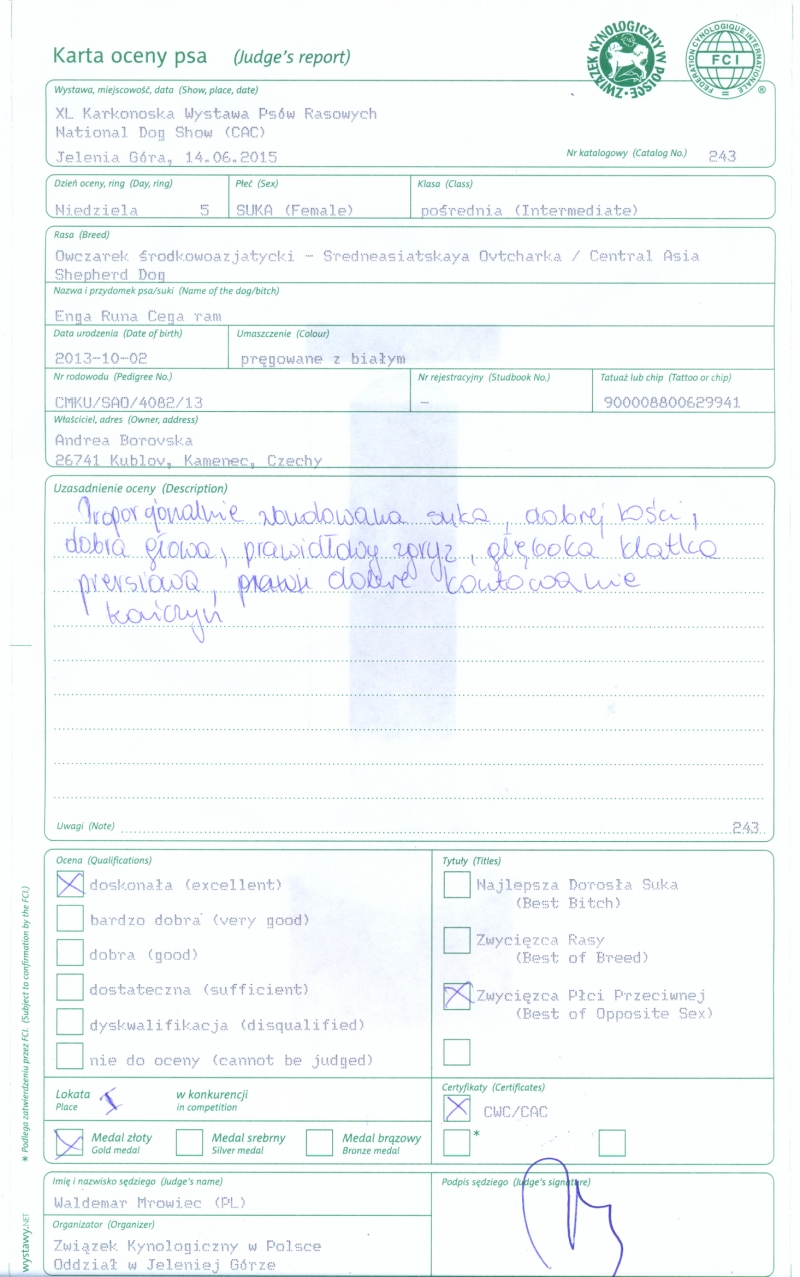 Karta oceny psa (Judge's report)
ZWIĄZEK KYNOLOGICZNY W POLSCE
FEDERATION CYNOLOGIQUE INTERNATIONALE
FCI
®
Wystawa, miejscowość, data (Show, place, date)
XL Karkonoska Wystawa Psów Rasowych
National Dog Show (CAC)
Jelenia Góra, 14.06.2015
Nr katalogowy (Catalog No.) 243
Dzień oceny, ring (Day, ring) Płeć (Sex) Klasa (Class)
Niedziela 5 SUKA (Female) pośrednia (Intermediate)
Rasa (Breed)
Owczarek środkowoazjatycki - Sredneasiatskaya Ovtcharka / Central Asia
Shepherd Dog
Nazwa i przydomek psa/suki (Name of the dog/bitch)
Enga Runa Cega ram
Data urodzenia (Date of birth) Umaszczenie (Colour)
2013-10-02 pręgowane z białym
Nr rodowodu (Pedigree No.) Nr rejestracyjny (Studbook No.) Tatuaż lub chip (Tattoo or chip)
CMKU/SAO/4082/13 - 900008800629941
Właściciel, adres (Owner, address)
Andrea Borovska
26741 Kublov, Kamenec, Czechy
Uzasadnienie oceny (Description)
Proporcjonalnie zbudowana suka, dobrej kości,
dobra głowa, prawidłowy zgryz, głęboka klatka
piersiowa, dobre kątowanie
kończyn
Uwagi (Note) 243
Ocena (Qualifications)
doskonała (excellent)
bardzo dobra (very good)
dobra (good)
dostateczna (sufficient)
dyskwalifikacja (disqualified)
nie do oceny (cannot be judged)
Tytuły (Titles)
Najlepsza Dorosła Suka
(Best Bitch)
Zwycięzca Rasy
(Best of Breed)
Zwycięzca Płci Przeciwnej
(Best of Opposite Sex)
Lokata I w konkurencji
Place in competition
Medal złoty Medal srebrny Medal brązowy
Gold medal Silver medal Bronze medal
Certyfikaty (Certificates)
CWC/CAC
*
Imię i nazwisko sędziego (Judge's name)
Waldemar Mrowiec (PL)
Podpis sędziego (Judge's signature)
Organizator (Organizer)
Związek Kynologiczny w Polsce
Oddział w Jeleniej Górze
* Podlega zatwierdzeniu przez FCI. (Subject to confirmation by the FCI.)
wystawy.NET